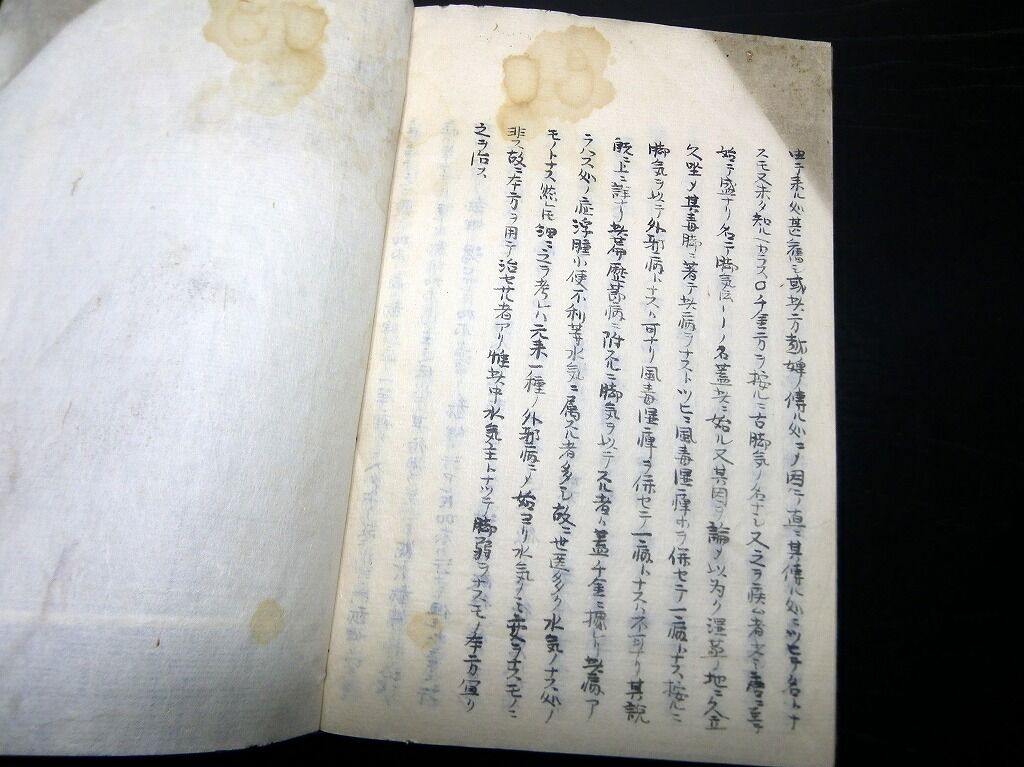 由テ来ル処甚舊シ或其方越婢ノ傳ル処ニメ因ニテ直ニ其傳ル処ニツヒテ名トナ
スモ又不可知ルヘカラス〇千金方ヲ按ルニ古脚気ノ名ナシ又之ヲ疾ム者少シ唐ニ至テ
始テ盛ナリ名テ脚気云〻ノ名蓋此ニ始ル又其因ヲ論メ以為ク湿草ノ地ニ久立
久坐メ其毒脚ニ著テ此病ヲナストツヒニ風毒湿痺ヲ併セテ一病トナス按ルニ
脚気ヲ以テ外邪病トナスハ可ナリ風毒湿痺ヲ併セテ一病トナスハ不可ナリ其説
既ニ上ニ詳ナリ此篇歴節病ニ附スルニ脚気ヲ以テスル者ハ蓋千金ニ據レリ此病ア
ラハス処ノ症浮腫小便不利等水気ニ属スル者多シ故ニ世医多ク水気ノナス処ノ
モノトナス然レモ細ニ之ヲ考レハ元来一種ノ外邪病ニメ始ヨリ水気ノミ変ヲナスモノニ
非ス故ニ本方ヲ用テ治セサル者アリ惟其中水気主トナツテ脚弱ヲナスモノ本方宜ク
之ヲ治ス